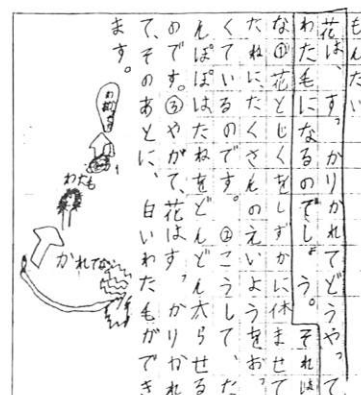 もんだい
花は、すっかりかれてどうやって
わた毛になるのでしょう。それは
な①花とじくをしずかに休ませて
たねに、たくさんのえいようをおっ
くっているのです。②こうして、た
んぽぽはたねをどんどん太らせる
のです。③やがて、花はすっかりかれ
て、そのあとに、白いわた毛ができ
ます。
わたも
かれてな